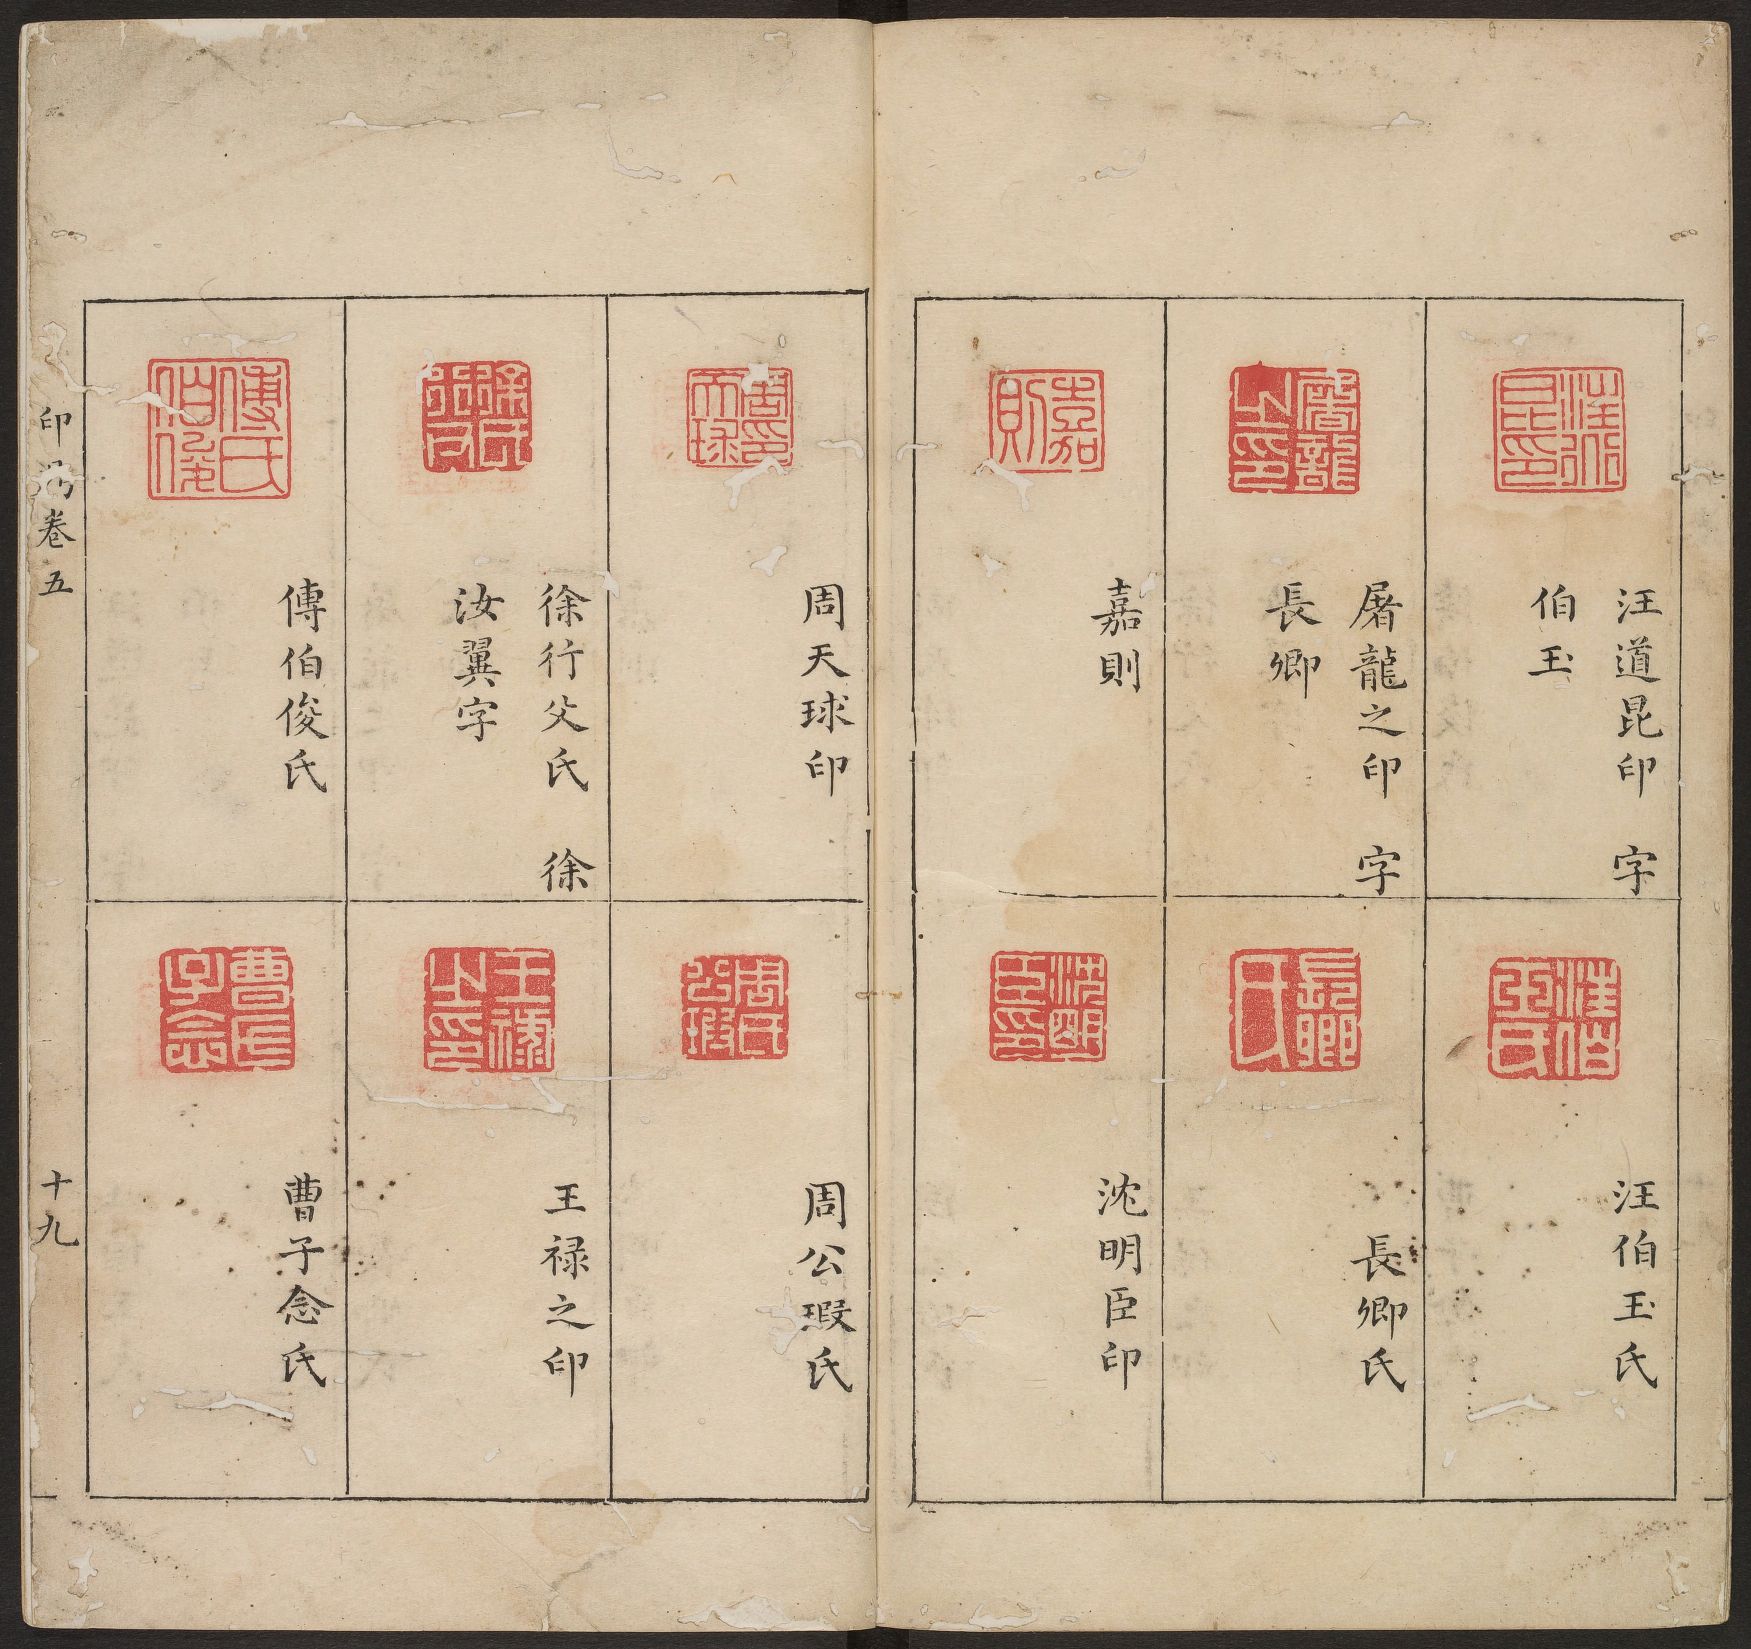 汪道昆印　字
伯玉
汪伯玉氏
屠龍之印　字
長卿
長卿氏
嘉則
沈明臣印
周天球印
周公瑕氏
徐行父氏　徐
汝翼字
王禄之印
傅伯俊氏
曹子念氏
印
卷五
十九